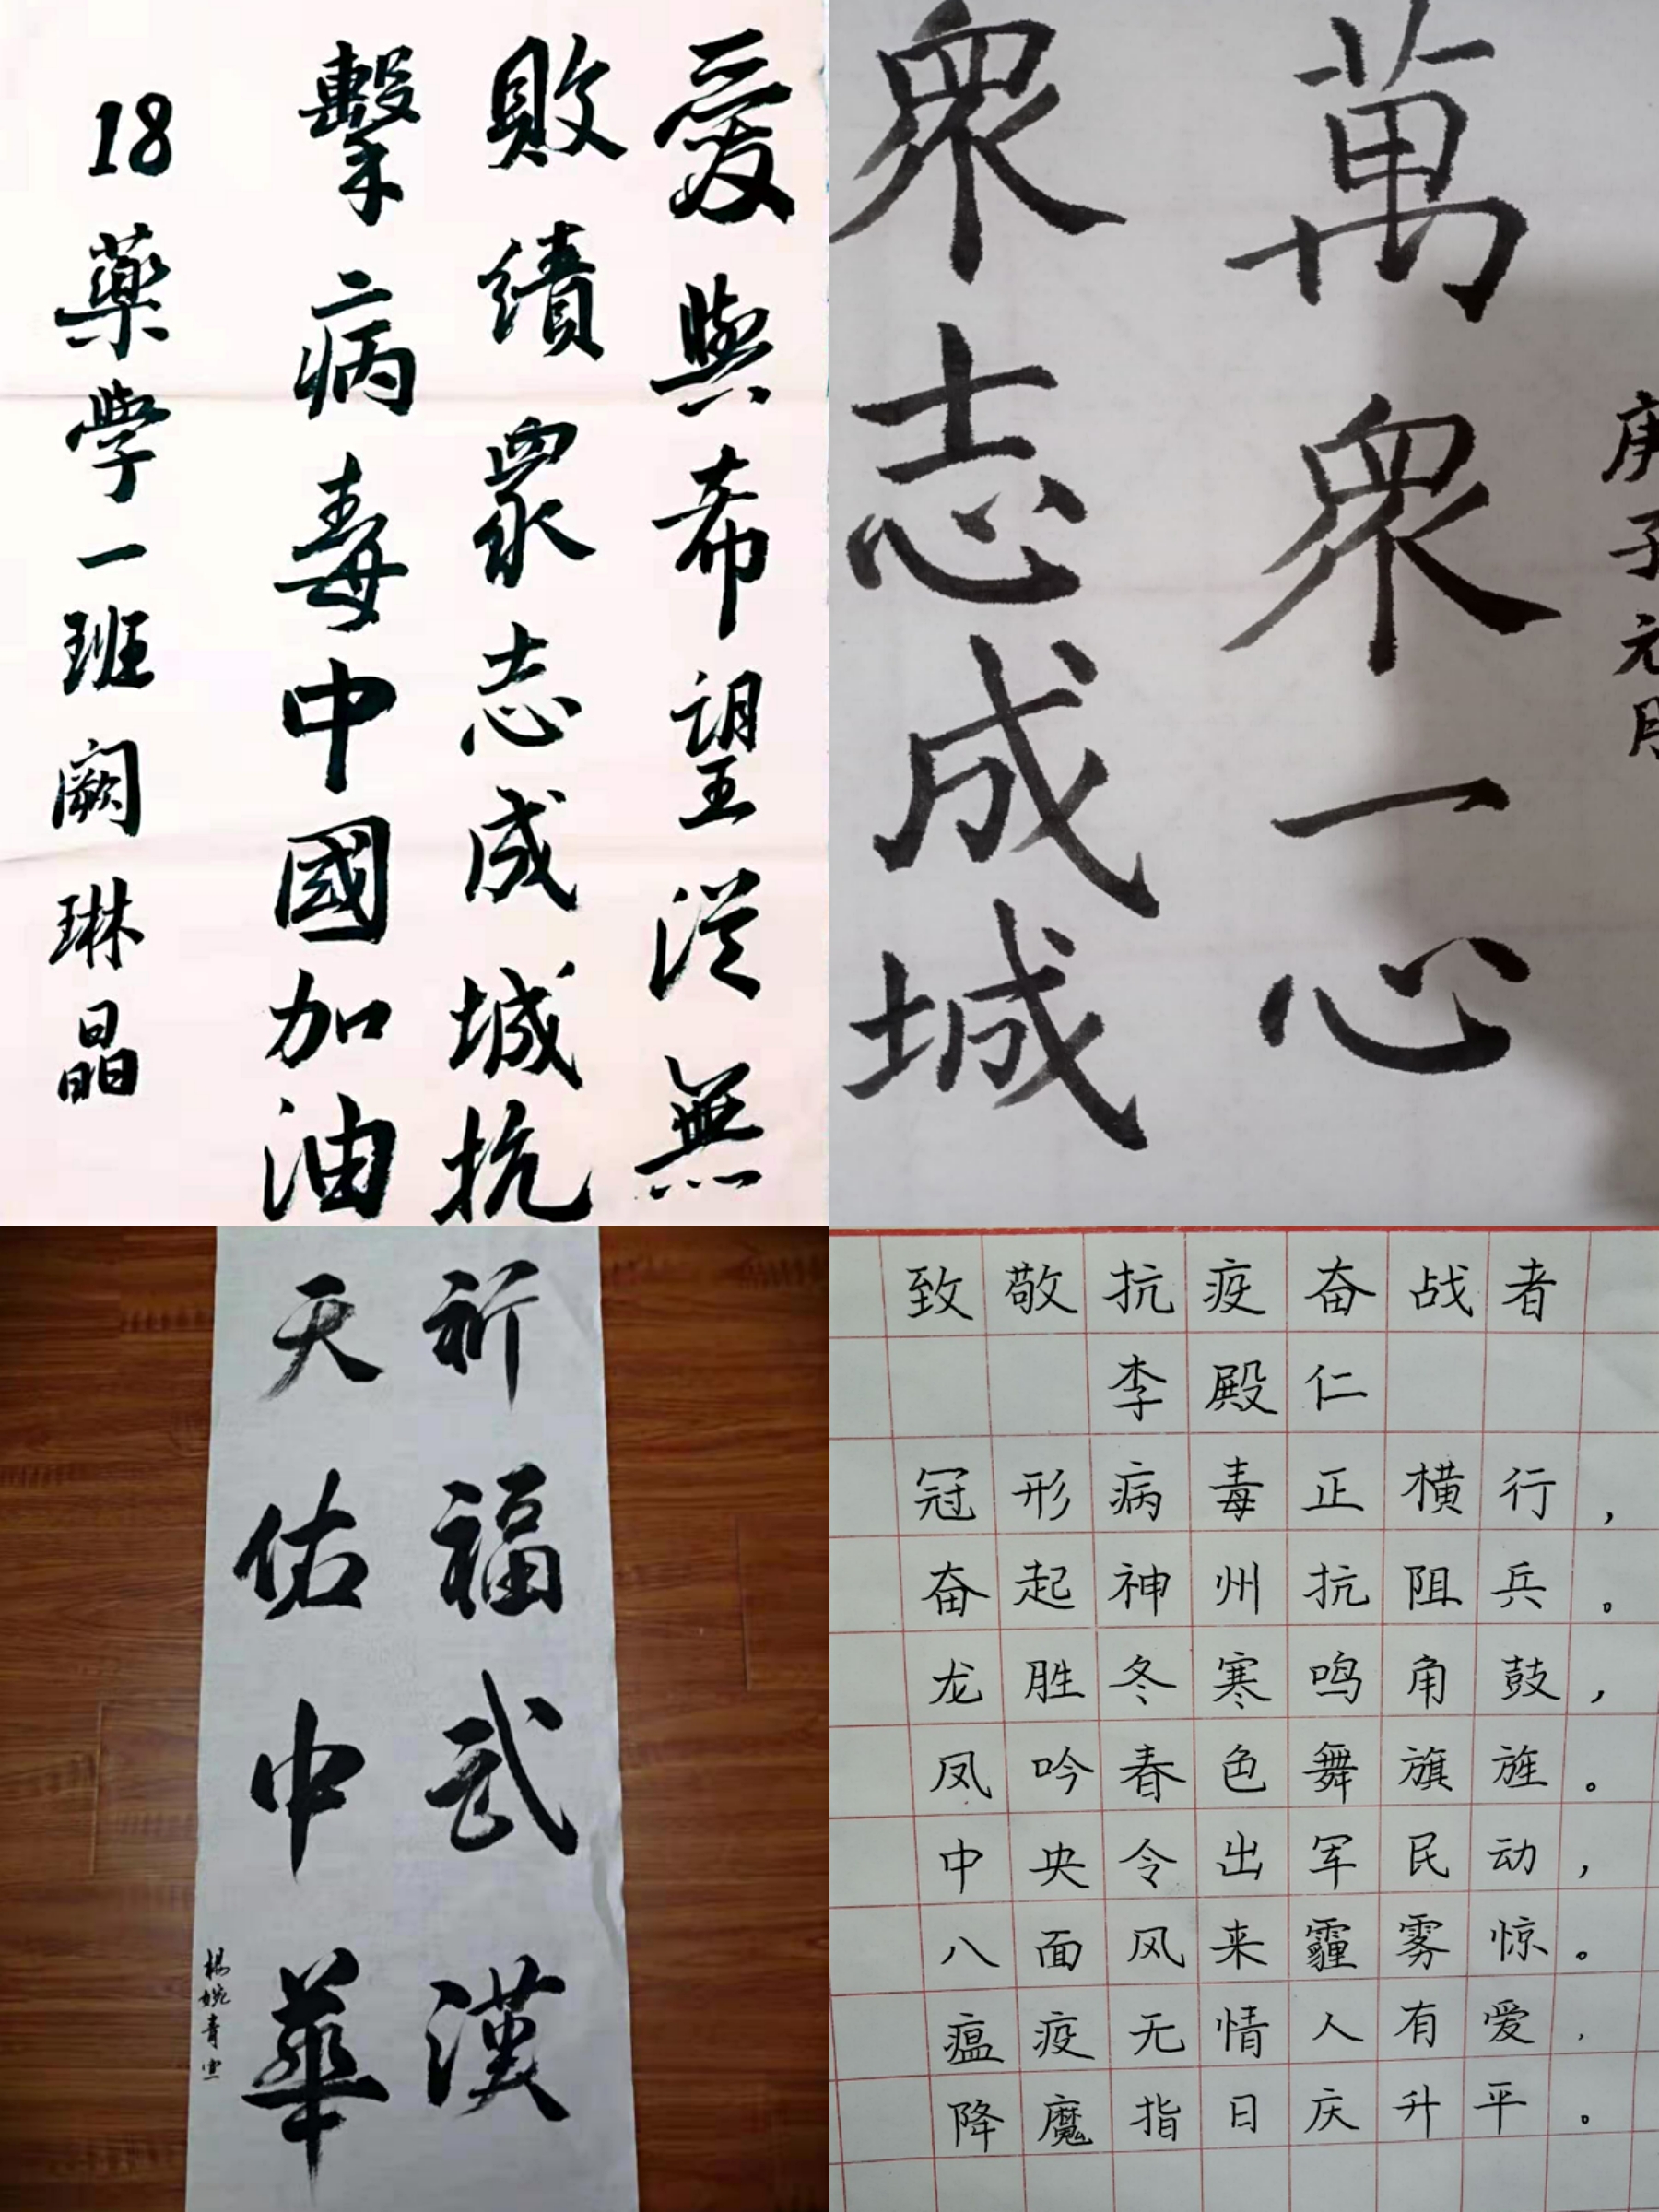 愛與希望從無
敗績眾志成城抗
擊病毒中國加油
18藥學一班闕琳晶
庚子元月
萬眾一心
眾志成城
祈福武漢
天佑中華
楊婉青書
致敬抗疫奋战者
李殿仁
冠形病毒正横行，
奋起神州抗阻兵。
龙胜冬寒鸣角鼓，
凤吟春色舞旗旌。
中央令出军民动，
八面风来霾雾惊。
瘟疫无情人有爱，
降魔指日庆升平。